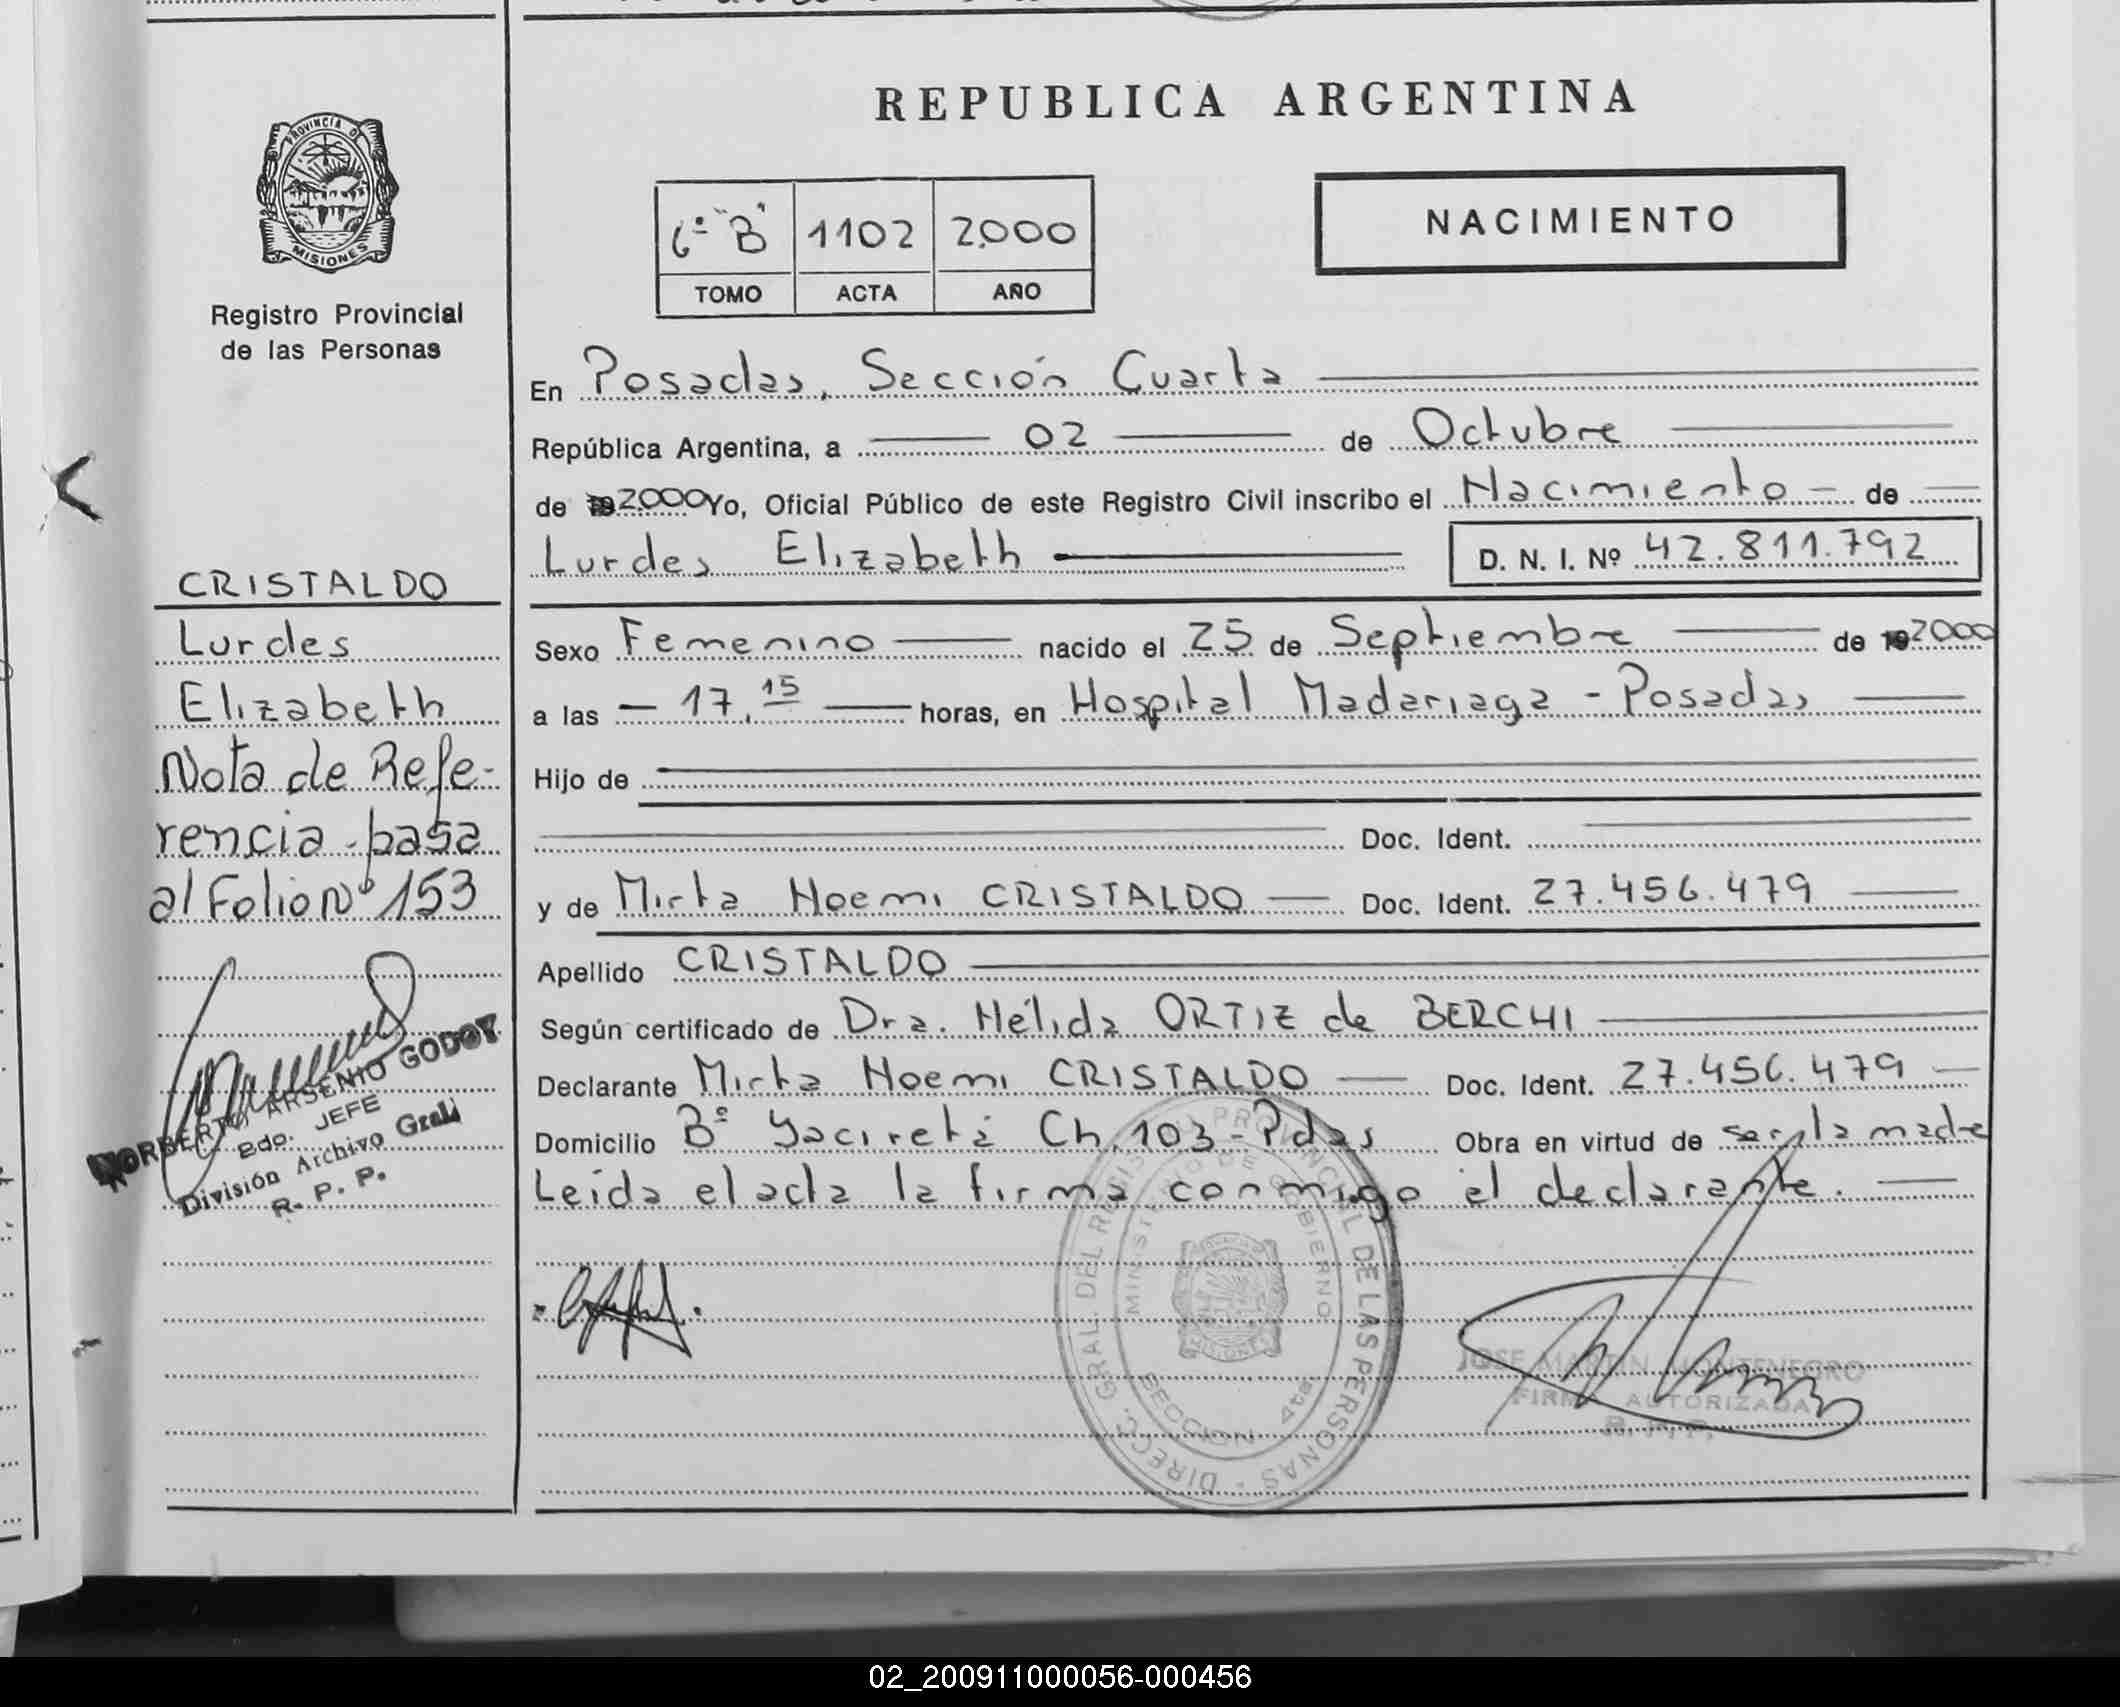 REPUBLICA ARGENTINA
PROVINCIA D
MISIONES
Registro Provincial
de las Personas
6º "B" 1102 2.000
TOMO ACTA AÑO
NACIMIENTO
En Posadas, Sección Cuarta
República Argentina, a 02 de Octubre
de 2.000 Yo, Oficial Público de este Registro Civil inscribo el Nacimiento - de
Lurdes Elizabeth D. N. I. Nº 42.811.792
Sexo Femenino nacido el 25 de Septiembre de 19 2000
a las - 17.15 horas, en Hospital Madariaga - Posadas
Hijo de
Doc. Ident.
y de Mirta Noemi CRISTALDO Doc. Ident. 27.456.479
Apellido CRISTALDO
Según certificado de Dra. Hélida ORTIZ de BERCHI
Declarante Mirta Noemi CRISTALDO Doc. Ident. 27.456.479
Domicilio Bº Yacireta Ch. 103 - Pdas Obra en virtud de ser la madre
Leída el acta la firma conmigo el declarante.
CRISTALDO
Lurdes
Elizabeth
Nota de Refe-
rencia - pasa
al Folio Nº 153
NORBERTO ARSENIO GODOY
Bdo. JEFE
División Archivo Gral
R. P. P.
DIRECC. GRAL. DEL REGISTRO PROVINCIAL DE LAS PERSONAS
MINISTERIO DE GOBIERNO
SECCION 4ta
JOSE MARTIN MONTENEGRO
FIRMA AUTORIZADA
R. P. P.
02_200911000056-000456